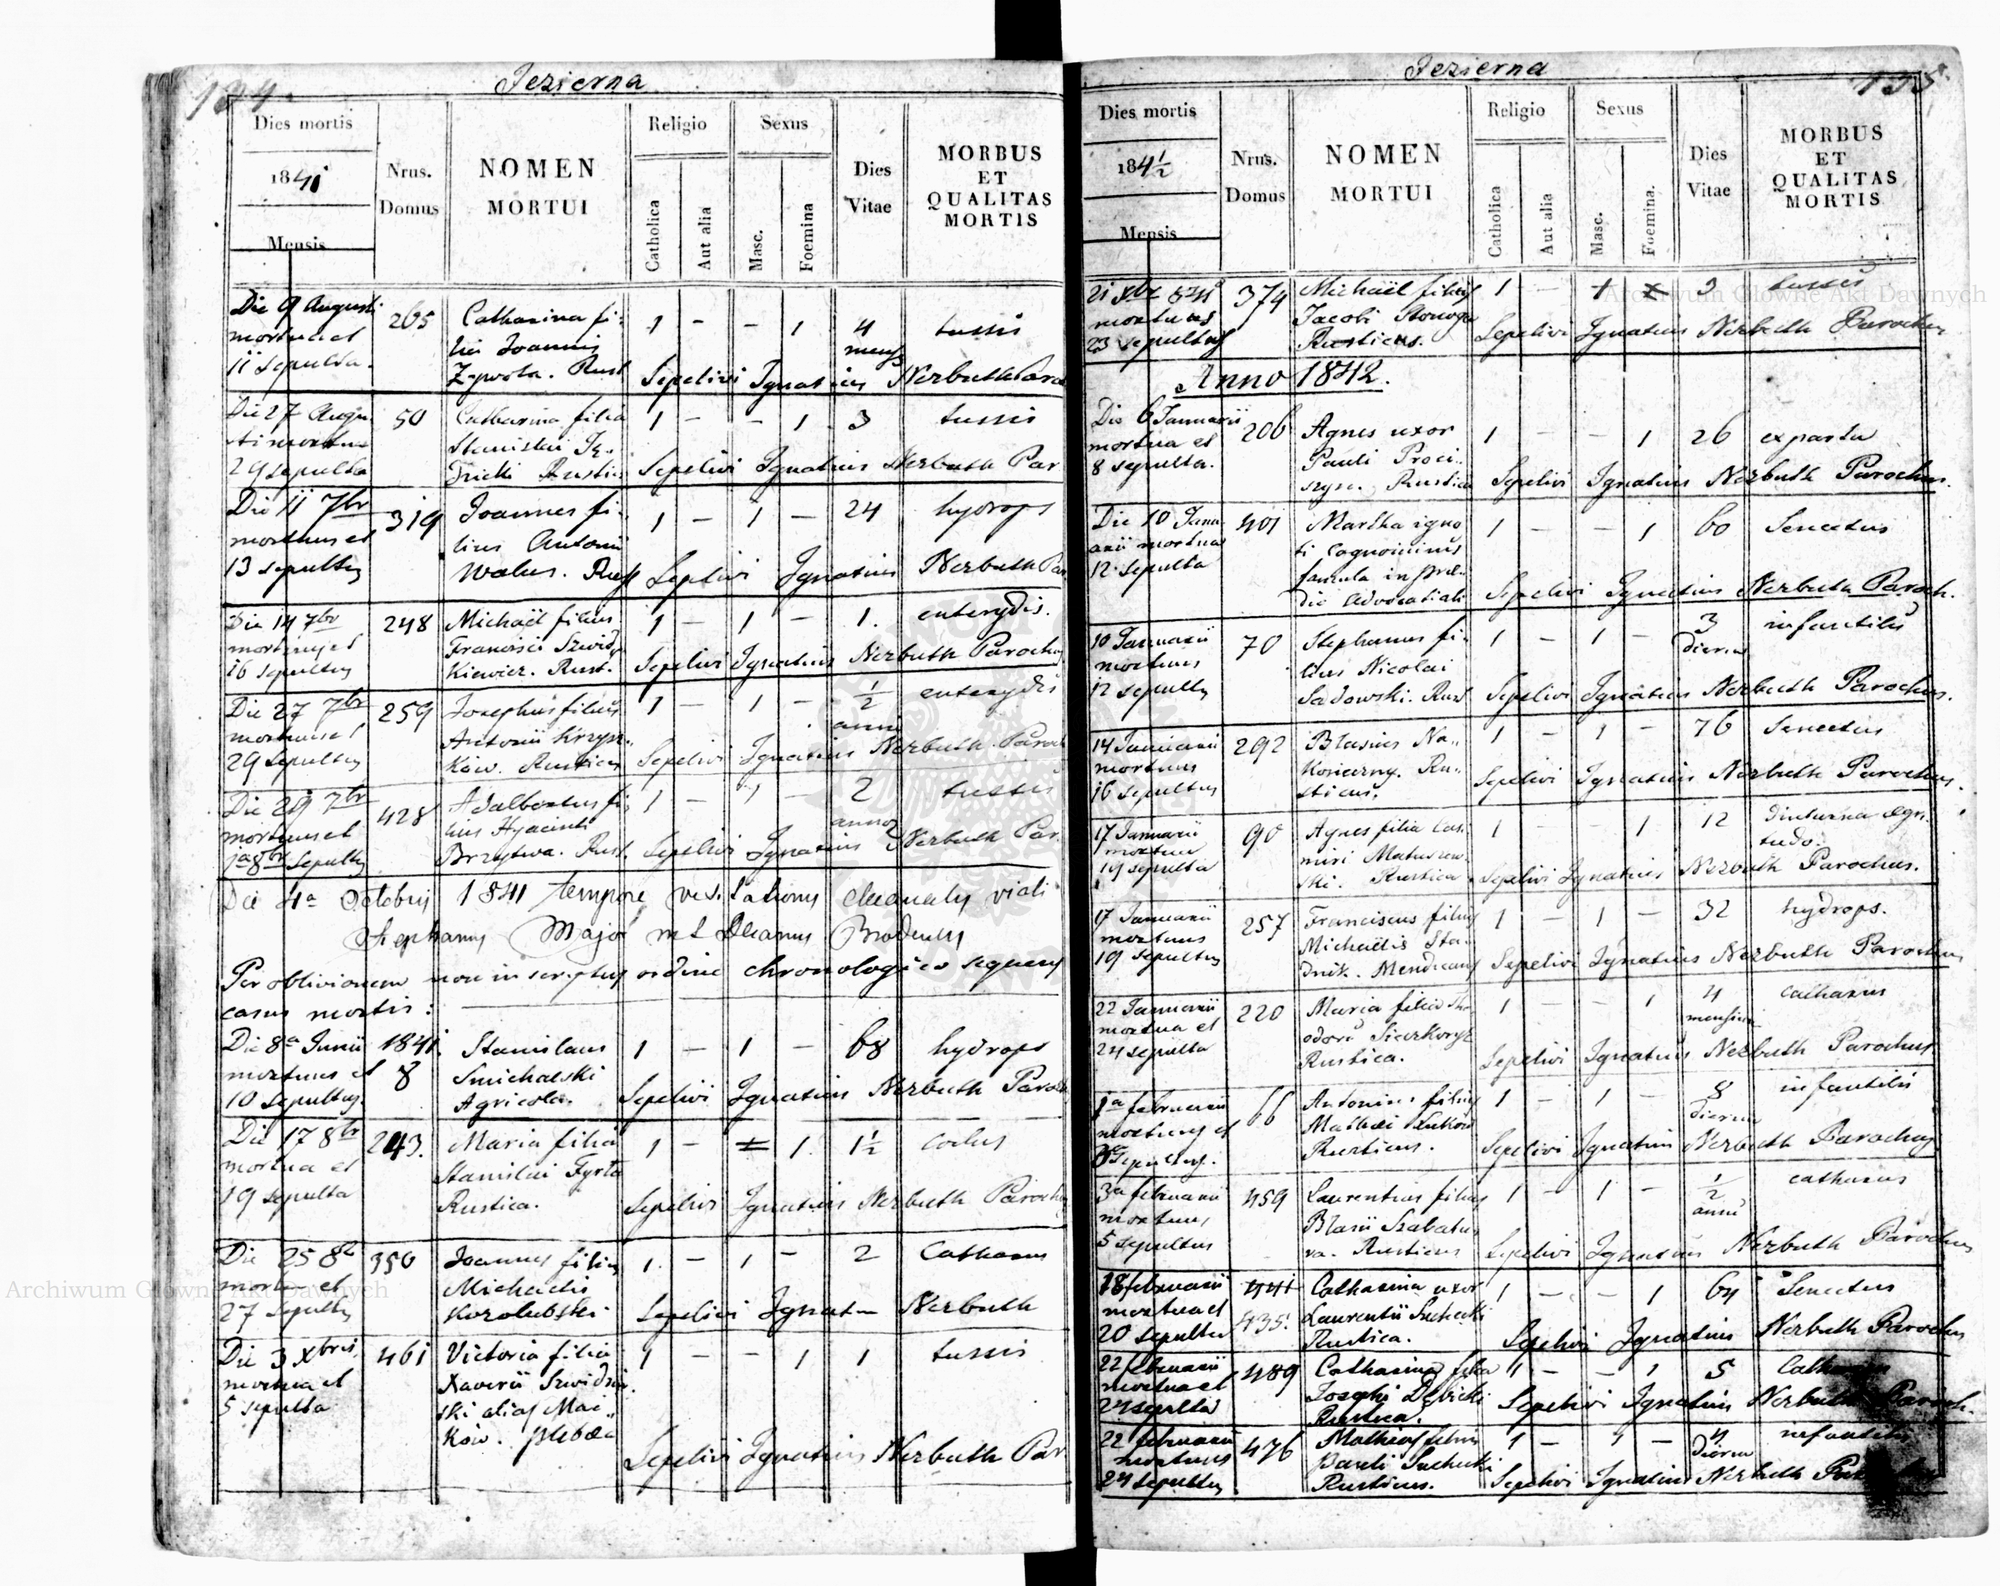 134
Jezierna
Dies mortis
1841
Mensis
Nrus.
Domus
NOMEN
MORTUI
Religio
Catholica
Aut alia
Sexus
Masc.
Foemina
Dies
Vitae
MORBUS
ET
QUALITAS
MORTIS
Die 9 Augusti 265 Catharina fi- 1 - - 1 4 tussis
mortua et lia Joannis mens
11 sepulta. Rust Sepelivi Ignatius Nerbuth Paro
Die 27 Augu 50 Catharina filia 1 - - 1 3 tussis
sti mortua Stanislai
29 sepulta Rustic Sepelivi Ignatius Nerbuth Par
Die 11 7br 319 Joannes fi- 1 - 1 - 24 hydrops
mortuus et lius Antonii
13 sepultus Walus. Rust Sepelivi Ignatius Nerbuth Par
Die 14 7br 248 Michaël filius 1 - 1 - 1. enterydis.
mortuus et Francisci Szwid
16 sepultus kiewicz. Rust. Sepelivi Ignatius Nerbuth Parochus
Die 27 7br 259 Josephus filius 1 - 1 - 1/2 enterydis
mortuus et Antonii Krzys- anni
29 sepultus ków. Rusticus Sepelivi Ignatius Nerbuth Paroch
Die 29 7br 428 Adalbertus fi 1 - 1 - 2 tussis
mortuus et lius Hyacinti annor
1a 8br sepultus Brzytwa. Rust. Sepelivi Ignatius Nerbuth Par.
Die 4a Octobris 1841 tempore visitationis decanalis vidi
Stephanus Major Decanus Brodensis
Per oblivionem non inscriptus ordine chronologico sequens
casus mortis:
Die 8a Junii 1841. Stanislaus 1 - 1 - 68 hydrops
mortuus et 8 Smichalski
10 sepultus. Agricola. Sepelivi Ignatius Nerbuth Paroch
Die 17 8br 243. Maria filia 1 - 1 1. 1 1/2
mortua et Stanislai Fyrta
19 sepulta Rustica. Sepelivi Ignatius Nerbuth Parochus
Die 25 8br 350 Joannes filius 1. - 1 - 2 Catharus
mortu et Michaelis
27 sepultus Korolubski Sepelivi Ignatius Nerbuth
Die 3 Xbris 461 Victoria filia 1 - - 1 1 tussis
mortua et Xaverii Szwidzin-
5 sepulta ski alias Mac-
ków. plebea
Sepelivi Ignatius Nerbuth Par
135
Jezierna
Dies mortis
184 1/2
Mensis
Nrus.
Domus
NOMEN
MORTUI
Religio
Catholica
Aut alia
Sexus
Masc.
Foemina.
Dies
Vitae
MORBUS
ET
QUALITAS
MORTIS
21 Xbr 841 374 Michaël filius 1 - 1 x 3 tussis
mortuus Jacobi Stonoga
23 sepultus Rusticus. Sepelivi Ignatius Nerbuth Parochus
Anno 1842.
Die 6 Januarii 206 Agnes uxor 1 - - 1 26 ex partu
mortua et Pauli Proci-
8 sepulta. szyn. Rustica Sepelivi Ignatius Nerbuth Parochus.
Die 10 Janu 401 Martha igno 1 - - 1 60 Senectus
arii mortua ti cognominis
12 sepulta famula in præ-
dio Advocatiali Sepelivi Ignatius Nerbuth Paroch.
10 Januarii 70 Stephanus fi- 1 - 1 - 3 infantilis
mortuus lius Nicolai dierum
12 sepultus Sadowski. Rust Sepelivi Ignatius Nerbuth Parochus.
14 Januarii 292 Blasius Na- 1 - 1 - 76 Senectus
mortuus koneczny. Ru-
16 sepultus sticus. Sepelivi Ignatius Nerbuth Parochus.
17 Januarii 90 Agnes filia Cas- 1 - - 1 12 diuturna ægri
mortua miri Matuszew- tudo.
19 sepulta ski. Rustica Sepelivi Ignatius Nerbuth Parochus.
17 Januarii 257 Franciscus filius 1 - 1 - 32 hydrops.
mortuus Michaëlis Sta-
19 sepultus dnik. Mendicans Sepelivi Ignatius Nerbuth Parochus
22 Januarii 220 Maria filia 1 - - 1 4 catharus
mortua et mensium
24 sepulta Rustica. Sepelivi Ignatius Nerbuth Parochus
1a februarii 66 Antonius filius 1 - 1 - 8 infantilis
mortuus et Mathæi Luków dierum
3 sepultus. Rusticus. Sepelivi Ignatius Nerbuth Parochus
3a februarii 459 Laurentius filius 1 - 1 - 1/2 catharus
mortuus Blasii Szabatu anni
5 sepultus ra. Rusticus Sepelivi Ignatius Nerbuth Parochus
18 februarii 441 Catharina uxor 1 - - 1 64 Senectus
mortua et 435. Laurentii Suchecki
20 sepulta Rustica. Sepelivi Ignatius Nerbuth Parochus
22 februarii 489 Catharina filia 1 - - 1 5 Catharus
mortua et Josephi Dębicki
24 sepulta Rustica. Sepelivi Ignatius Nerbuth Paroch.
22 februarii 476 Mathias filius 1 - 1 - 4 infantilis
mortuus Pauli Suchecki dierum
24 sepultus Rusticus. Sepelivi Ignatius Nerbuth
Archiwum Główne Akt Dawnych
Archiwum Główne Akt Dawnych